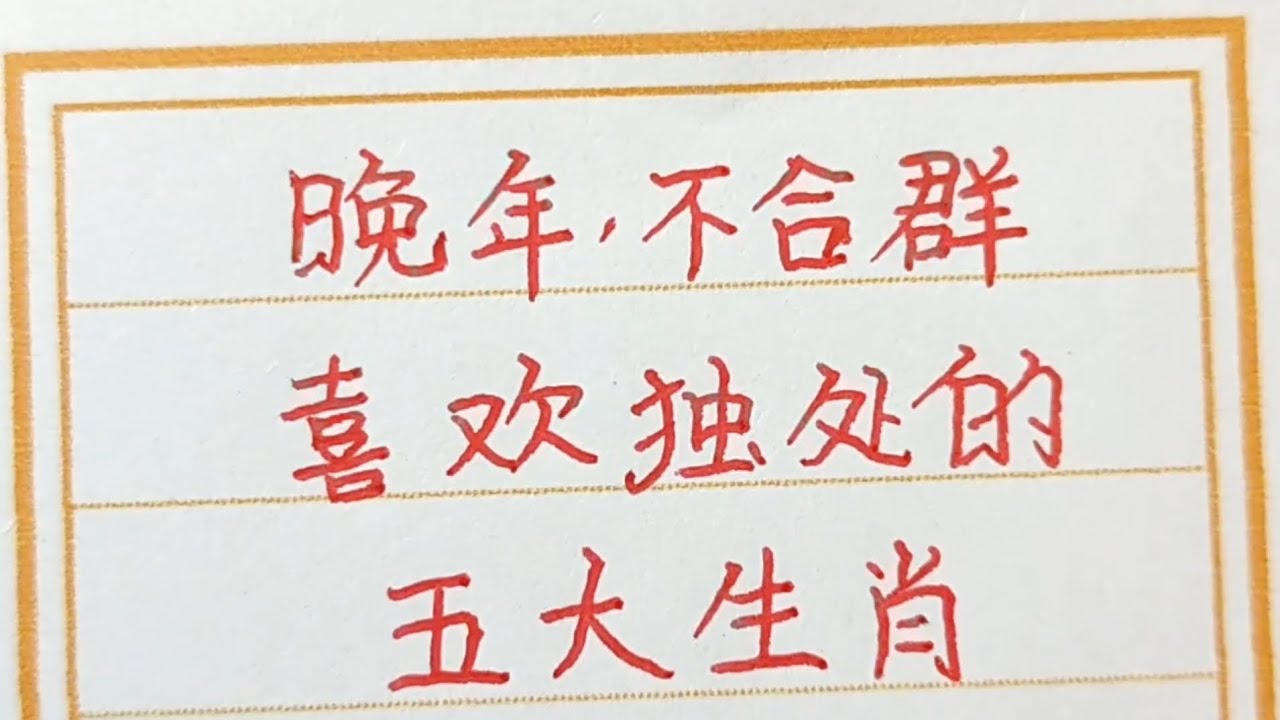 晚年,不合群
喜欢独处的
五大生肖